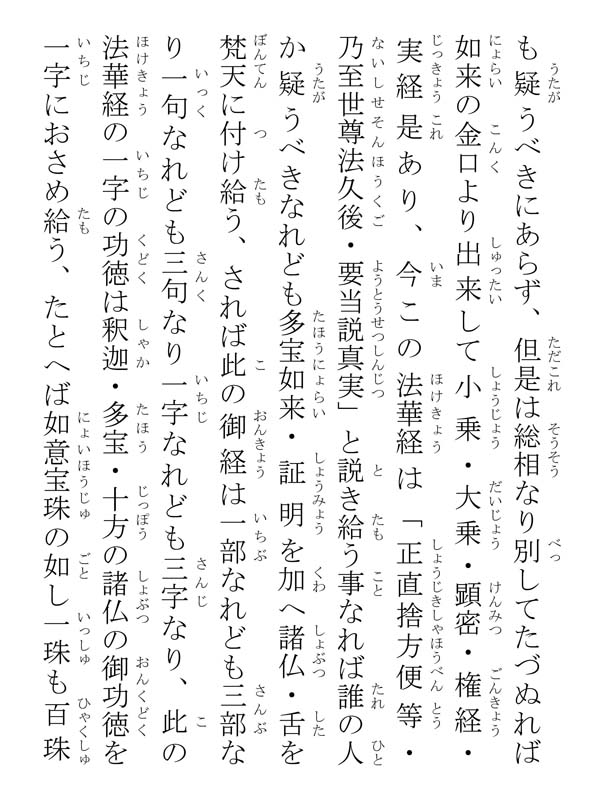 も疑うべきにあらず、但是は総相なり別してたづぬれば
如来の金口より出来して小乗・大乗・顕密・権経・
実経是あり、今この法華経は「正直捨方便等・
乃至世尊法久後・要当説真実」と説き給う事なれば誰の人
か疑うべきなれども多宝如来・証明を加へ諸仏・舌を
梵天に付け給う、されば此の御経は一部なれども三部な
り一句なれども三句なり一字なれども三字なり、此の
法華経の一字の功徳は釈迦・多宝・十方の諸仏の御功徳を
一字におさめ給う、たとへば如意宝珠の如し一珠も百珠